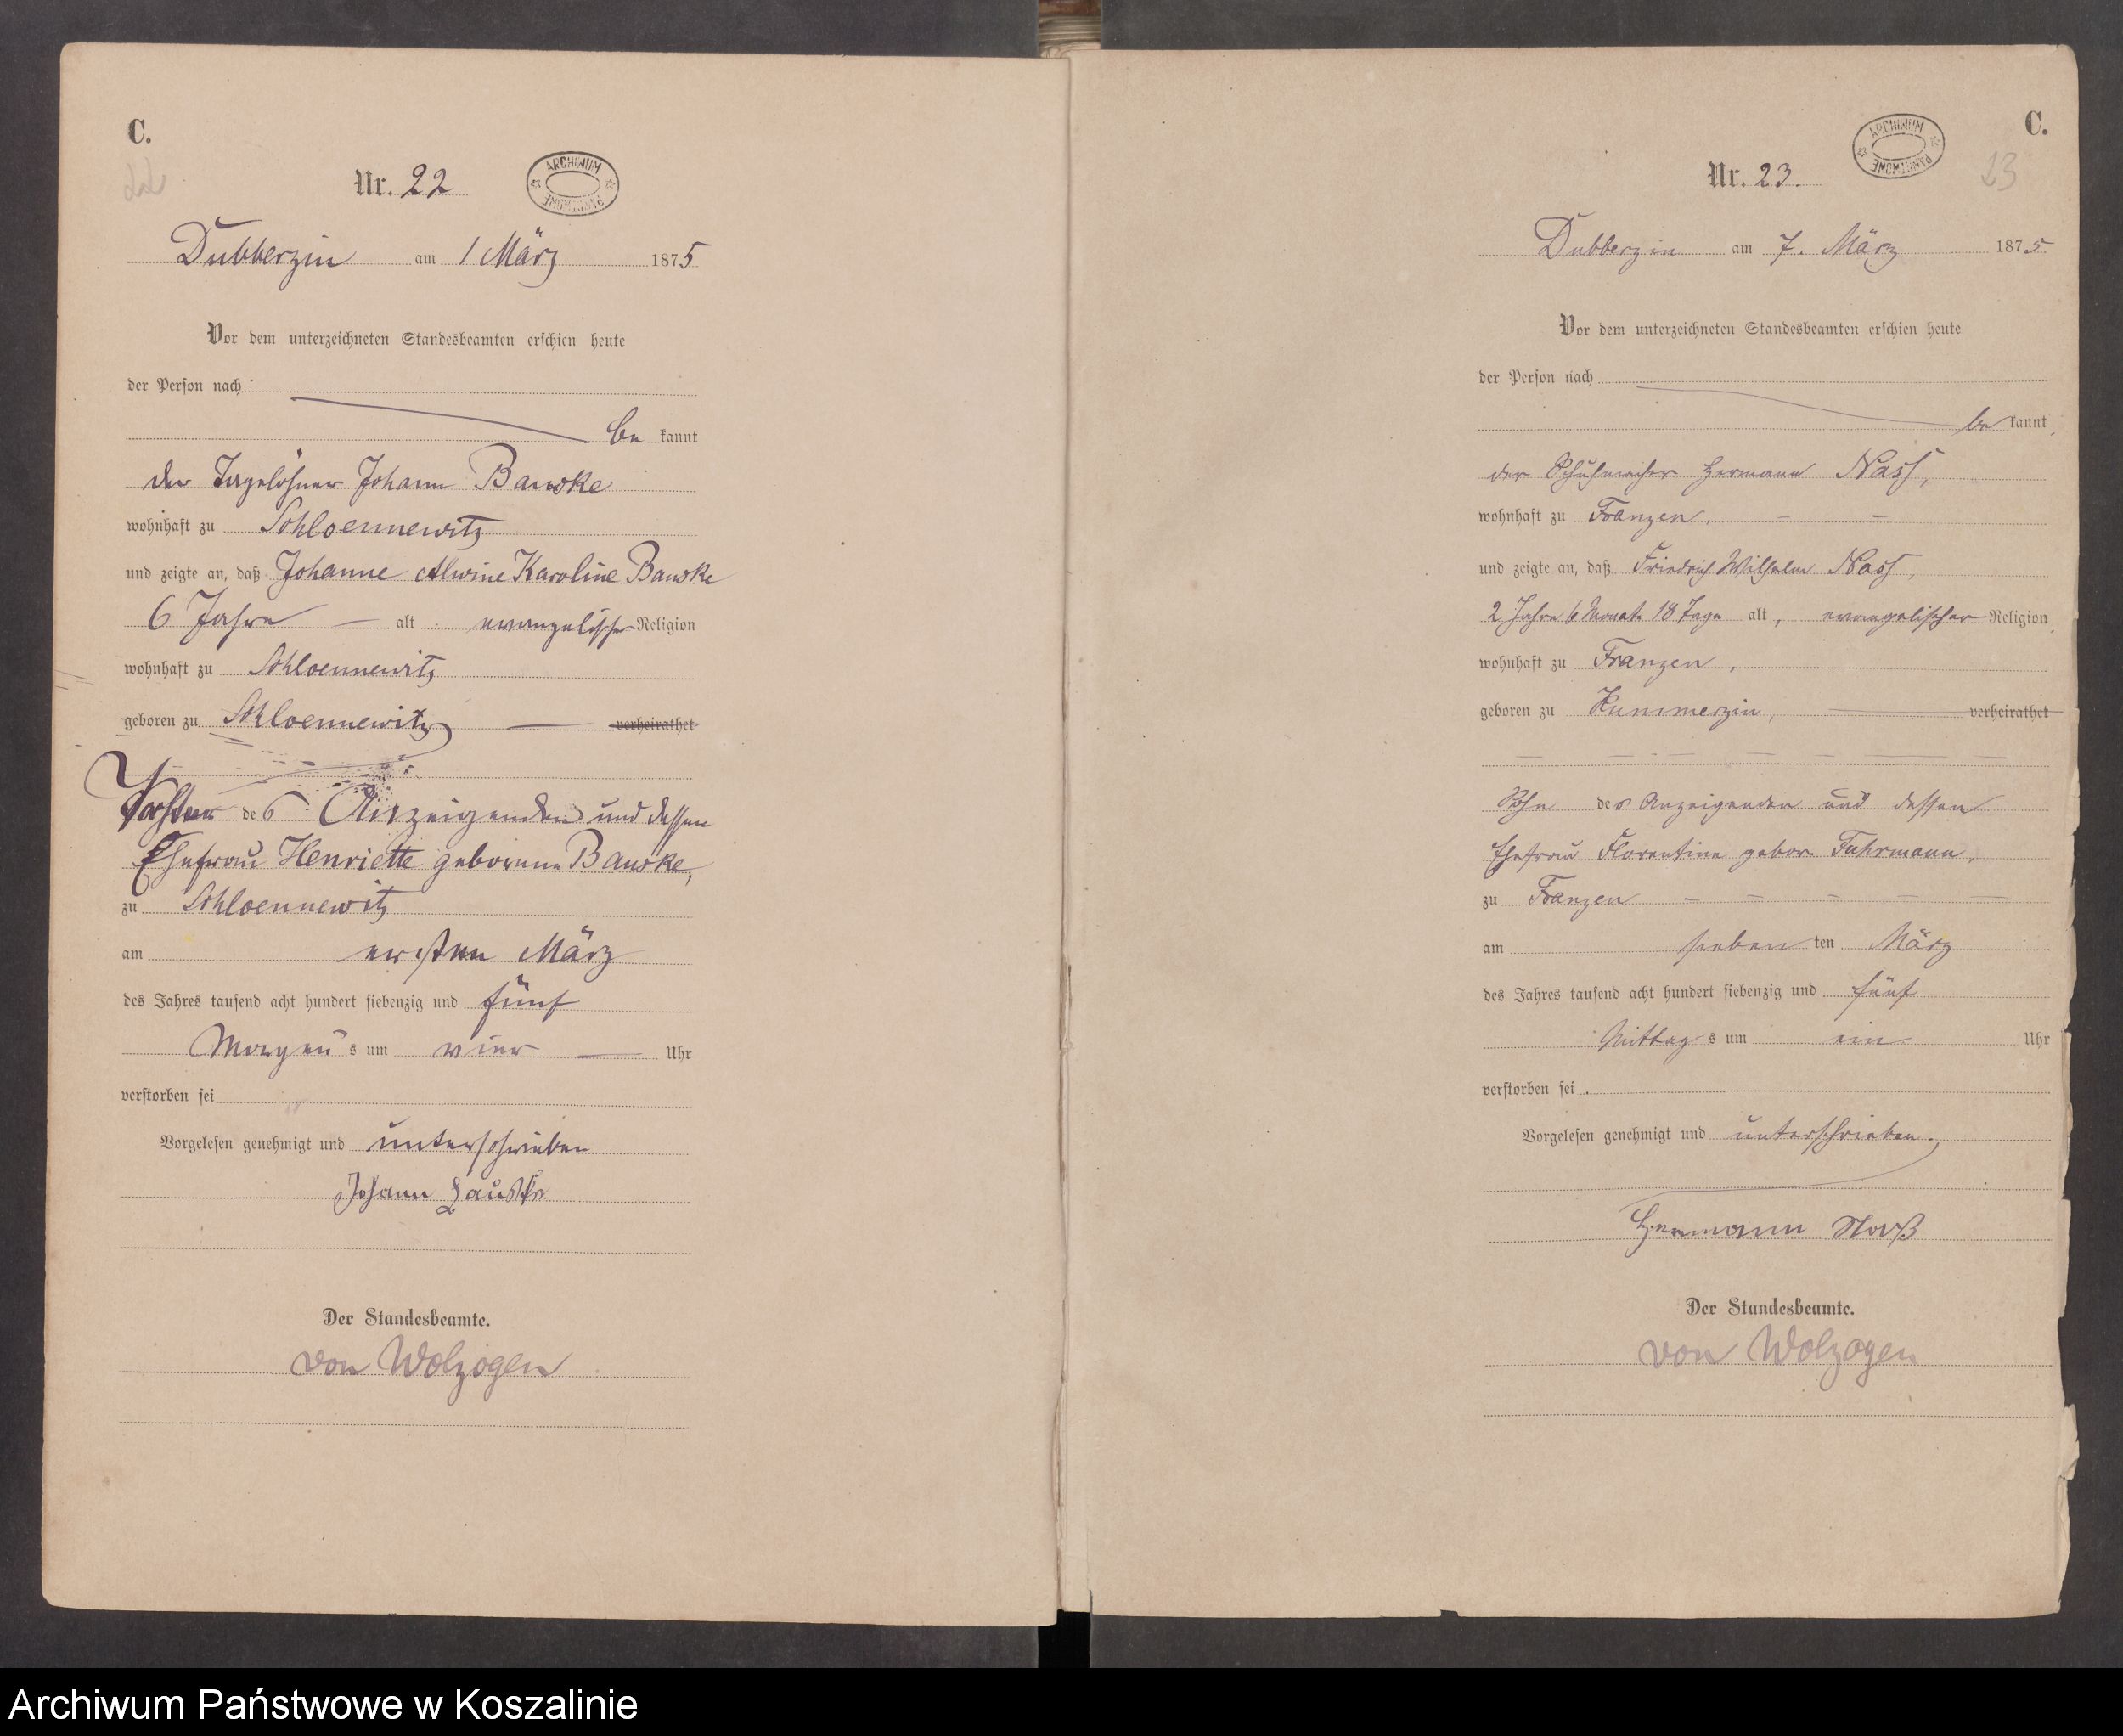 C.
Nr. 22
ARCHIWUM PAŃSTWOWE
Dubberzin am 1 März 1875
Vor dem unterzeichneten Standesbeamten erschien heute
der Person nach
be kannt
der Tagelöhner Johann Bauske
wohnhaft zu Schloennewitz
und zeigte an, daß Johanne Alwine Karoline Bauske
6 Jahre — alt evangelischer Religion
wohnhaft zu Schloennewitz
geboren zu Schloennewitz — verheirathet
Tochter des Anzeigenden und dessen
Ehefrau Henriette geborene Bauske,
zu Schloennewitz
am ersten März
des Jahres tausend acht hundert siebenzig und fünf
Morgens um vier — Uhr
verstorben sei
Vorgelesen genehmigt und unterschrieben
Johann Bauske
Der Standesbeamte.
von Wolzogen
C.
Nr. 23.
ARCHIWUM PAŃSTWOWE
23
Dubberzin am 7. März 1875
Vor dem unterzeichneten Standesbeamten erschien heute
der Person nach
be kannt,
der Schuhmacher Hermann Nass,
wohnhaft zu Franzen, — —
und zeigte an, daß Friedrich Wilhelm Nass,
2 Jahre 6 Monate 18 Tage alt, evangelischer Religion,
wohnhaft zu Franzen,
geboren zu Kummerzin, — verheirathet
Sohn des Anzeigenden und dessen
Ehefrau Florentine gebor. Fuhrmann,
zu Franzen — — — — —
am siebenten März
des Jahres tausend acht hundert siebenzig und fünf
Mittags um ein Uhr
verstorben sei.
Vorgelesen genehmigt und unterschrieben.,
Hermann Naß
Der Standesbeamte.
von Wolzogen
Archiwum Państwowe w Koszalinie